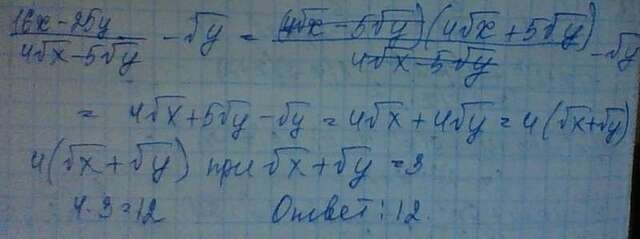 (16x - 25y)/(4√x - 5√y) - √y = ((4√x - 5√y)(4√x + 5√y))/(4√x - 5√y) - √y
= 4√x + 5√y - √y = 4√x + 4√y = 4(√x + √y)
4(√x + √y) при √x + √y = 3
4 · 3 = 12 Ответ: 12.